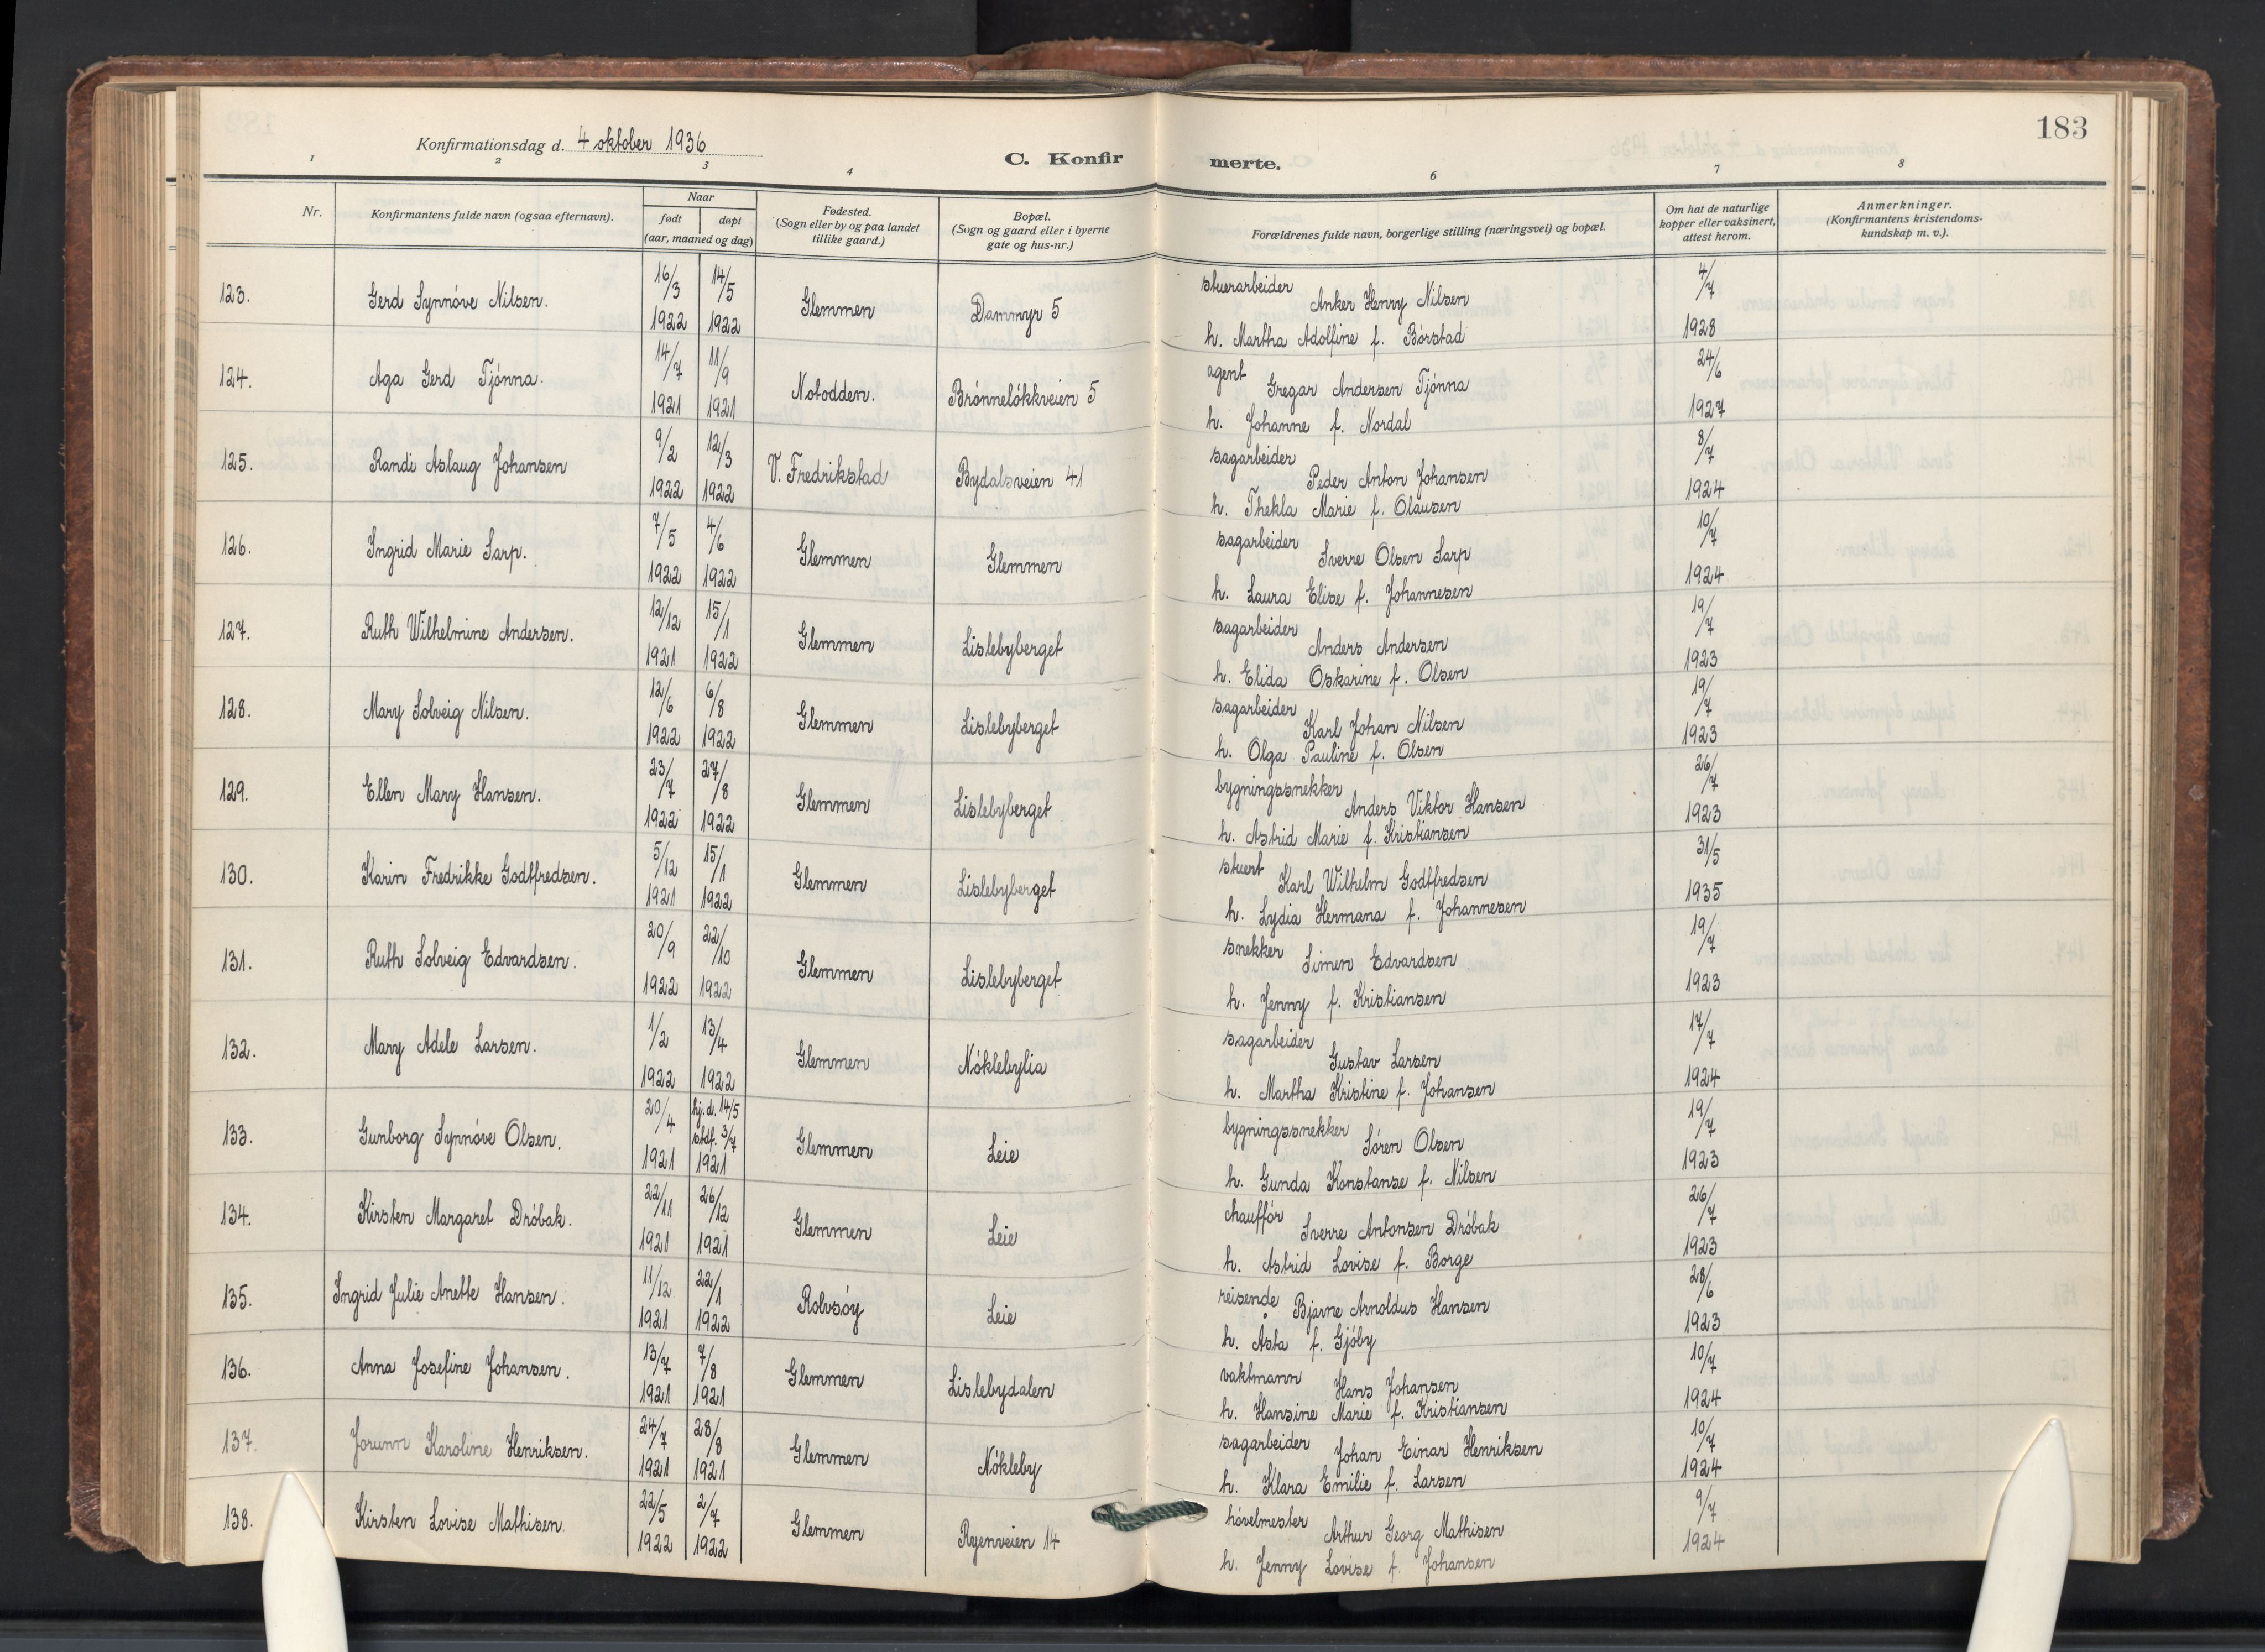 183
Konfirmationsdag d. 4 oktober 1936
C. Konfirmerte.
1 2 3 4 6 7 8
Nr. | Konfirmantens fulde navn (ogsaa efternavn). | Naar født døpt (aar, maaned og dag) | Fødested. (Sogn eller by og paa landet tillike gaard.) | Bopæl. (Sogn og gaard eller i byerne gate og hus-nr.) | Forældrenes fulde navn, borgerlige stilling (næringsvei) og bopæl. | Om hat de naturlige kopper eller vaksinert, attest herom. | Anmerkninger. (Konfirmantens kristendoms-kundskap m. v.).
123. Gerd Synnóve Nilsen. 16/3 1922 14/5 1922 Glemmen Dammyr 5 stuerarbeider Anker Henry Nilsen 4/7 1928
h. Martha Adolfine f. Bórstad
124. Aga Gerd Tjónna. 14/7 1921 11/9 1921 Notodden. Brónnelókkveien 5 agent Gregar Andersen Tjónna 24/6 1927
h. Johanne f. Nordal
125. Randi Aslaug Johansen 9/2 1922 12/3 1922 V. Fredrikstad Bydalsveien 41 sagarbeider Peder Anton Johansen 8/7 1924
h. Thekla Marie f. Olausen
126. Ingrid Marie Sarp. 7/5 1922 4/6 1922 Glemmen Glemmen sagarbeider Sverre Olsen Sarp 10/7 1924
h. Laura Elise f. Johannesen
127. Ruth Wilhelmine Andersen. 12/12 1921 15/1 1922 Glemmen Lislebyberget sagarbeider Anders Andersen 19/7 1923
h. Elida Oskarine f. Olsen
128. Mary Solveig Nilsen. 12/6 1922 6/8 1922 Glemmen Lislebyberget sagarbeider Karl Johan Nilsen 19/7 1923
h. Olga Pauline f. Olsen
129. Ellen Mary Hansen. 23/7 1922 27/8 1922 Glemmen Lislebyberget bygningssnekker Anders Viktor Hansen 26/7 1923
h. Astrid Marie f. Kristiansen
130. Karin Fredrikke Godtfredsen. 5/12 1921 15/1 1922 Glemmen Lislebyberget stuert Karl Wilhelm Godtfredsen 31/5 1935
h. Lydia Hermana f. Johannesen
131. Ruth Solveig Edvardsen. 20/9 1922 22/10 1922 Glemmen Lislebyberget snekker Simen Edvardsen 19/7 1923
h. Jenny f. Kristiansen
132. Mary Adele Larsen. 1/2 1922 13/4 1922 Glemmen Nóklebylia sagarbeider Gustav Larsen 17/7 1924
h. Martha Kristine f. Johansen
133. Gunborg Synnóve Olsen. 20/4 1921 hj.d. 14/5 stdf. 3/7 1921 Glemmen Leie bygningssnekker Sóren Olsen 19/7 1923
h. Gunda Konstanse f. Nilsen
134. Kirsten Margaret Dróbak. 22/11 1921 26/12 1921 Glemmen Leie chauffór Sverre Antonsen Dróbak 26/7 1923
h. Astrid Lovise f. Borge
135. Ingrid Julie Anette Hansen. 11/12 1921 22/1 1922 Rolvsóy Leie reisende Bjarne Arnoldus Hansen 28/6 1923
h. Asta f. Gjóby
136. Anna Josefine Johansen. 13/7 1921 7/8 1921 Glemmen Lislebydalen vaktmann Hans Johansen 10/7 1924
h. Hansine Marie f. Kristiansen
137. Jorunn Karoline Henriksen. 24/7 1921 28/8 1921 Glemmen Nókleby sagarbeider Johan Einar Henriksen 10/7 1924
h. Klara Emilie f. Larsen
138. Kirsten Lovise Mathisen. 22/5 1922 2/7 1922 Glemmen Ryenveien 14 hóvelmester Arthur Georg Mathisen 9/7 1924
h. Jenny Lovise f. Johansen